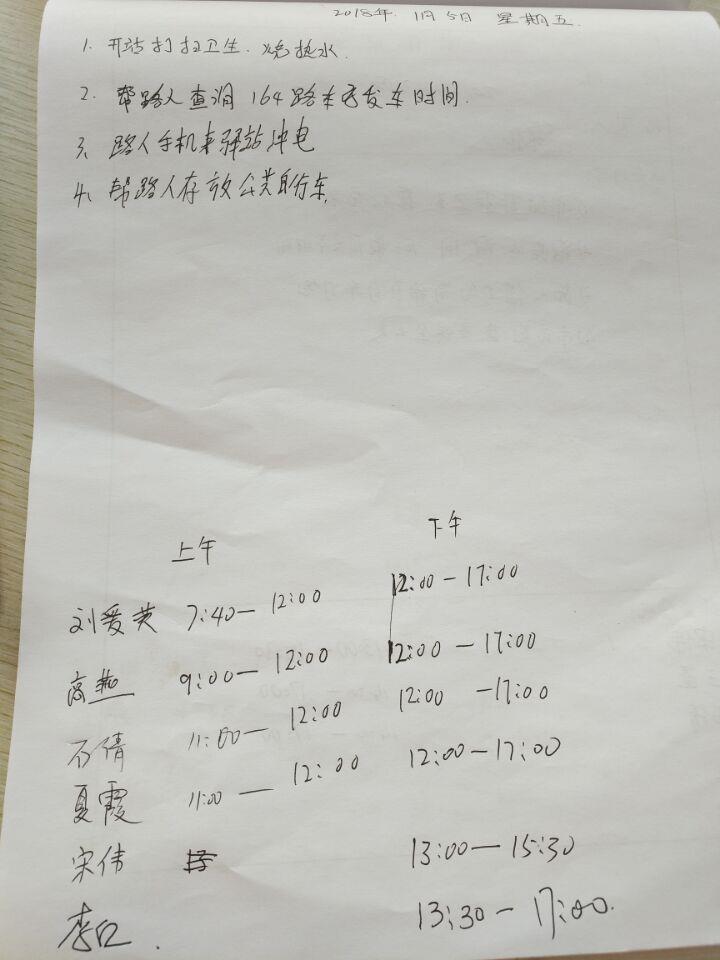 2018年 1月5日 星期五.
1. 开站打扫卫生.烧热水.
2. 帮路人查询164路车子发车时间.
3、路人手机来驿站冲电
4、帮路人存放公共自行车.
上午 下午
刘爱英 7:40—12:00 12:00—17:00
高燕 9:00—12:00 12:00—17:00
石倩 11:00—12:00 12:00—17:00
夏霞 11:00—12:00 12:00—17:00
宋伟 13:00—15:30
李 13:30—17:00.